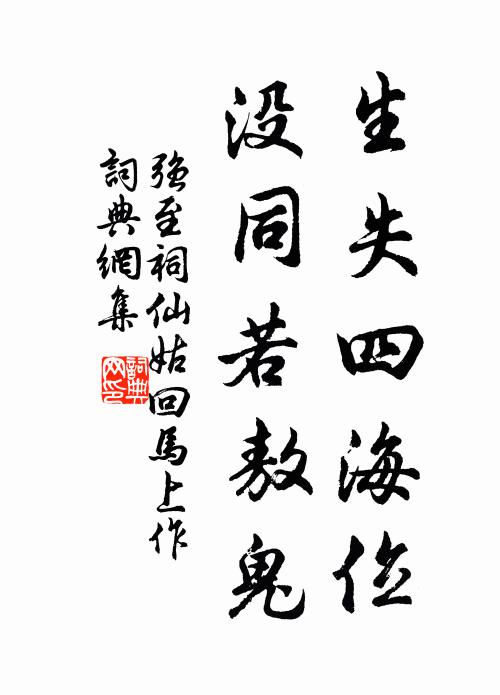 生失四海位
没同若敖鬼
强至祠仙姑回馬上作
詞典網集
詞典网印